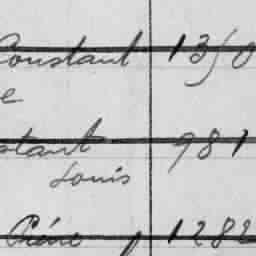 Constant 1350
e
stant 981
Louis
Piéne 1282